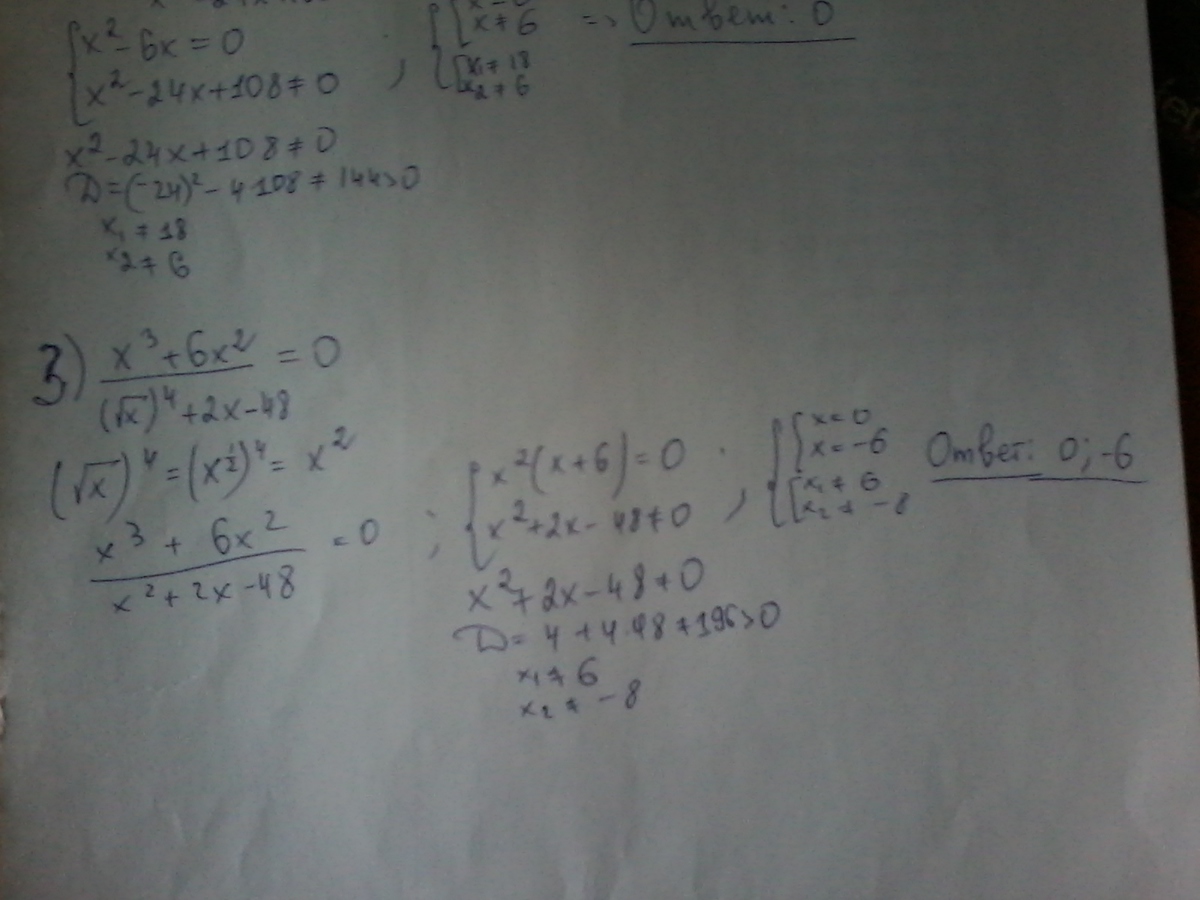 { x² - 6x = 0
{ x² - 24x + 108 ≠ 0 ,
{ [ x ≠ 6 => Ответ: 0
{ [ x₁ ≠ 18
x₂ ≠ 6
x² - 24x + 108 ≠ 0
D = (-24)² - 4·108 ≠ 144 > 0
x₁ ≠ 18
x₂ ≠ 6
3) (x³ + 6x²) / ((√x)⁴ + 2x - 48) = 0
(√x)⁴ = (x^(1/2))⁴ = x²
(x³ + 6x²) / (x² + 2x - 48) = 0 ;
{ x²(x + 6) = 0
{ x² + 2x - 48 ≠ 0 ,
{ [ x = 0
x = -6
{ [ x₁ ≠ 6
x₂ ≠ -8
Ответ: 0; -6
x² + 2x - 48 ≠ 0
D = 4 + 4·48 ≠ 196 > 0
x₁ ≠ 6
x₂ ≠ -8